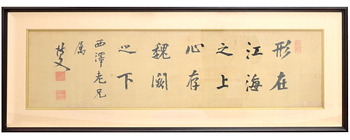 形在
江海
之上
心存
魏闕
之下
西澤老兄
属